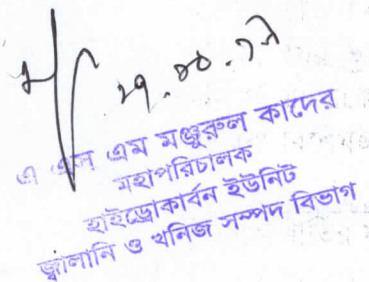 ২৭.১০.১৯
এ এস এম মঞ্জুরুল কাদের
মহাপরিচালক
হাইড্রোকার্বন ইউনিট
জ্বালানি ও খনিজ সম্পদ বিভাগ